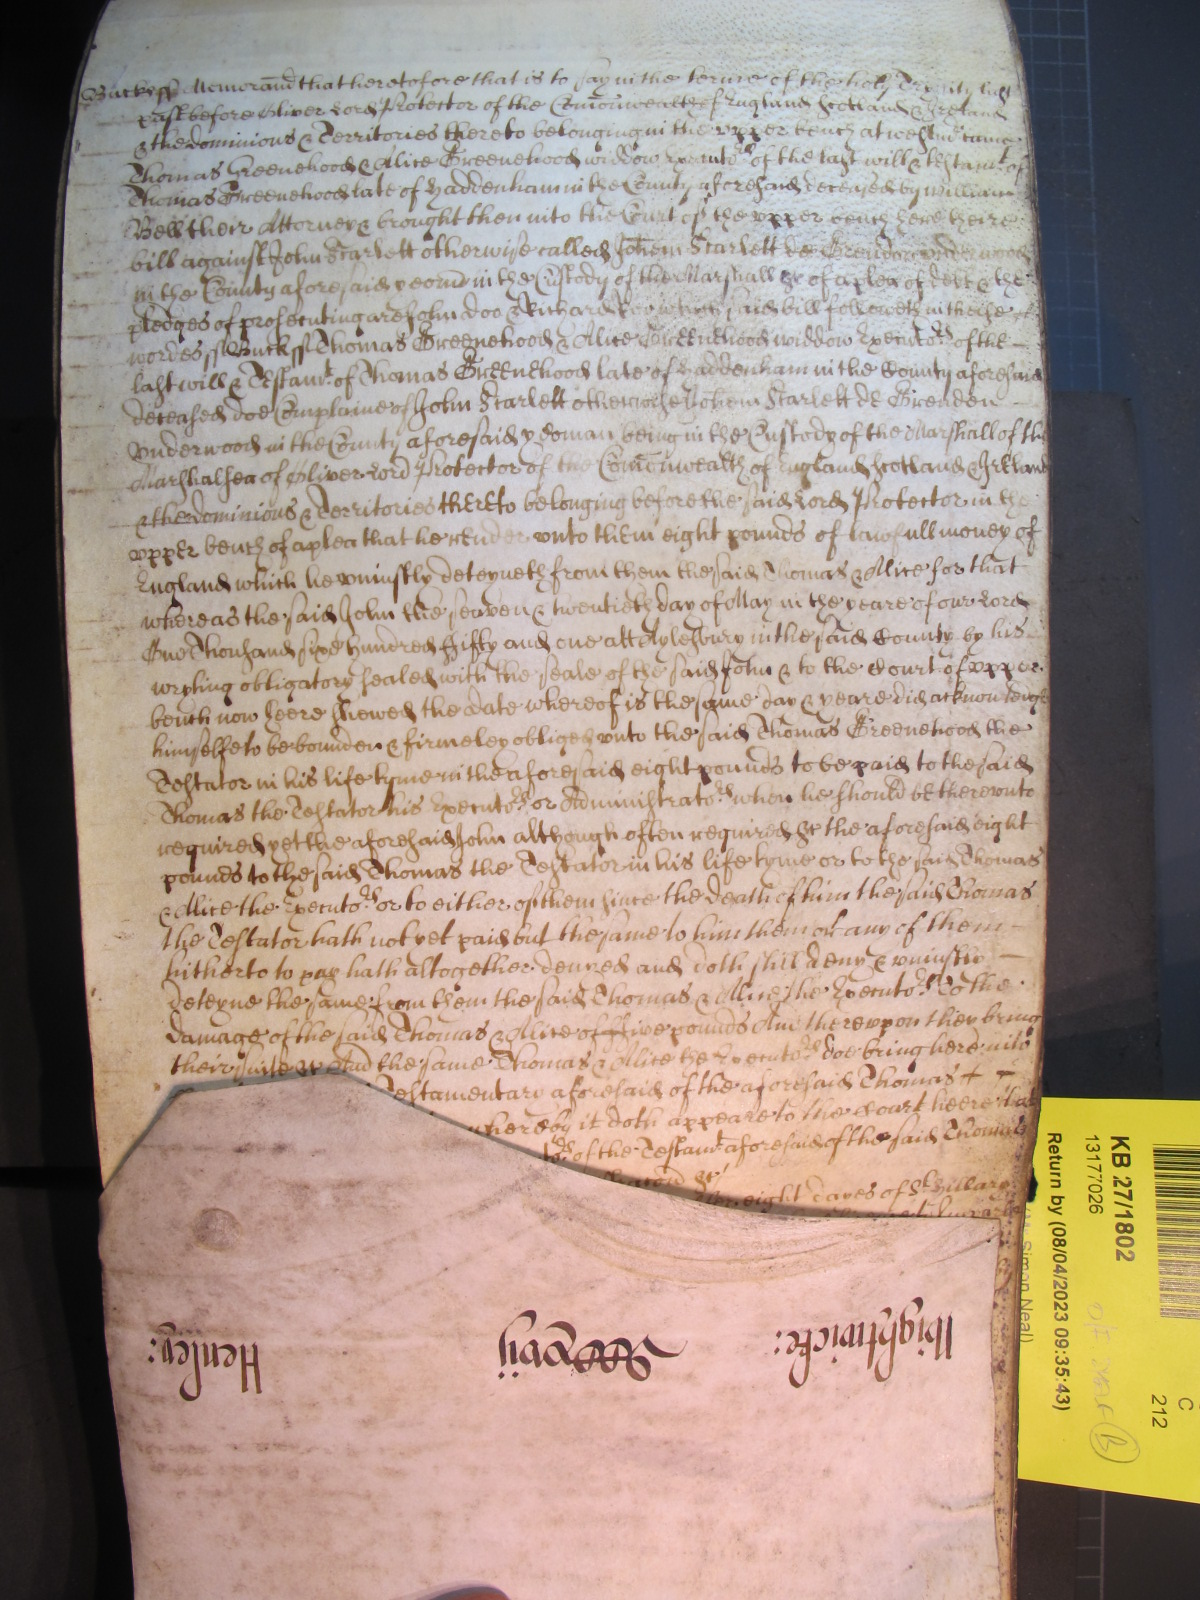 Bucks ss Memorand that heretofore that is to say in the terme of the holy Trynity last
past before Oliver Lord Protector of the Comonwealth of England Scotland & Ireland
& the dominions & Territories thereto belonging in the upper bench at westmr came
Thomas Greenehood & Alice Greenehood widdow Executors of the last will & testamt of
Thomas Greenehood late of Haddenham in the County aforesaid deceased by William
Bell their Attorney & brought then into the Court of the upper bench here theire
bill against John Scarlett otherwise called Johem Scarlett de Grendon underwood
in the County aforesaid yeoman in the Custody of the Marshall &c of a plea of debt & the
pledges of prosecuting are John Doo & Richard Roo which said bill followeth in these
wordes ss Bucks ss Thomas Greenehood & Alice Greenehood widdow Executors of the
last will & Testamt of Thomas Greenehood late of Haddenham in the County aforesaid
deceased doe Complaine of John Scarlett otherwise Johem Scarlett de Grenden
Underwood in the County aforesaid yeoman being in the Custody of the Marshall of the
Marshalsea of Oliver Lord Protector of the Comonwealth of England Scotland & Ireland
& the dominions & Territories thereto belonging before the said Lord Protector in the
upper bench of a plea that he render unto them eight pounds of lawfull money of
England which he uniustly deteyneth from them the said Thomas & Alice for that
whereas the said John the seaven & twentieth day of May in the yeare of our Lord
One Thousand sixe hundred Fifty and one att Aylesbury in the said County by his
wryting obligatory sealed with the seale of the said John & to the Court of upper
bench now heere shewed the date whereof is the same day & yeare did acknowledge
himselfe to be bounden & firmeley obliged unto the said Thomas Greenehood the
Testator in his life tyme in the aforesaid eight pounds to be paid to the said
Thomas the Testator his Executors or Administrators when he should be thereunto
required yet the aforesaid John although often required &c the aforesaid eight
pounds to the said Thomas the Testator in his life tyme or to the said Thomas
& Alice the Executors or to either of them since the death of him the said Thomas
the Testator hath not yet paid but the same to him them or any of them
hitherto to pay hath altogether denyed and doth still deny & uniustly
deteyne the same from them the said Thomas & Alice the Executors To the
damage of the said Thomas & Alice of Five pounds And thereupon they bring
their suite &c And the same Thomas & Alice the Executors doe bring here into
Testamentary aforesaid of the aforesaid Thomas
whereby it doth appeare to the Court heere that
of the Testamt aforesaid of the said Thomas
eight dayes of St Hillary
Wightwicke:
Henley:
KB 27/1802
13177026
Return by (08/04/2023 09:35:43)
(Mr Simon Neal)
C
212